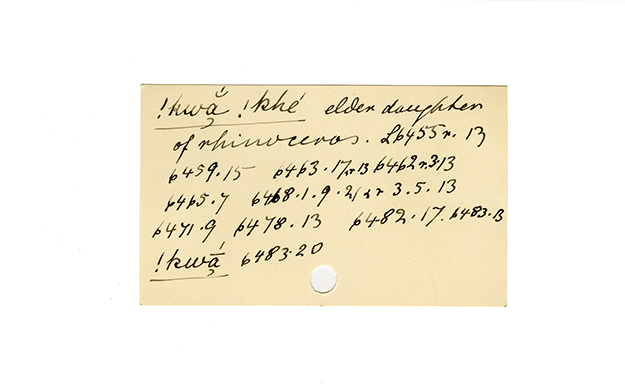 !kwắ̱ !khé elder daughter
of rhinoceros. L6455r. 13
6459.15 6463.17/r.13 6462r.3.13
6465.7 6468.1.9.21 & r 3.5.13
6471.9 6478.13 6482.17. 6483.13
!kwā̱́ 6483.20